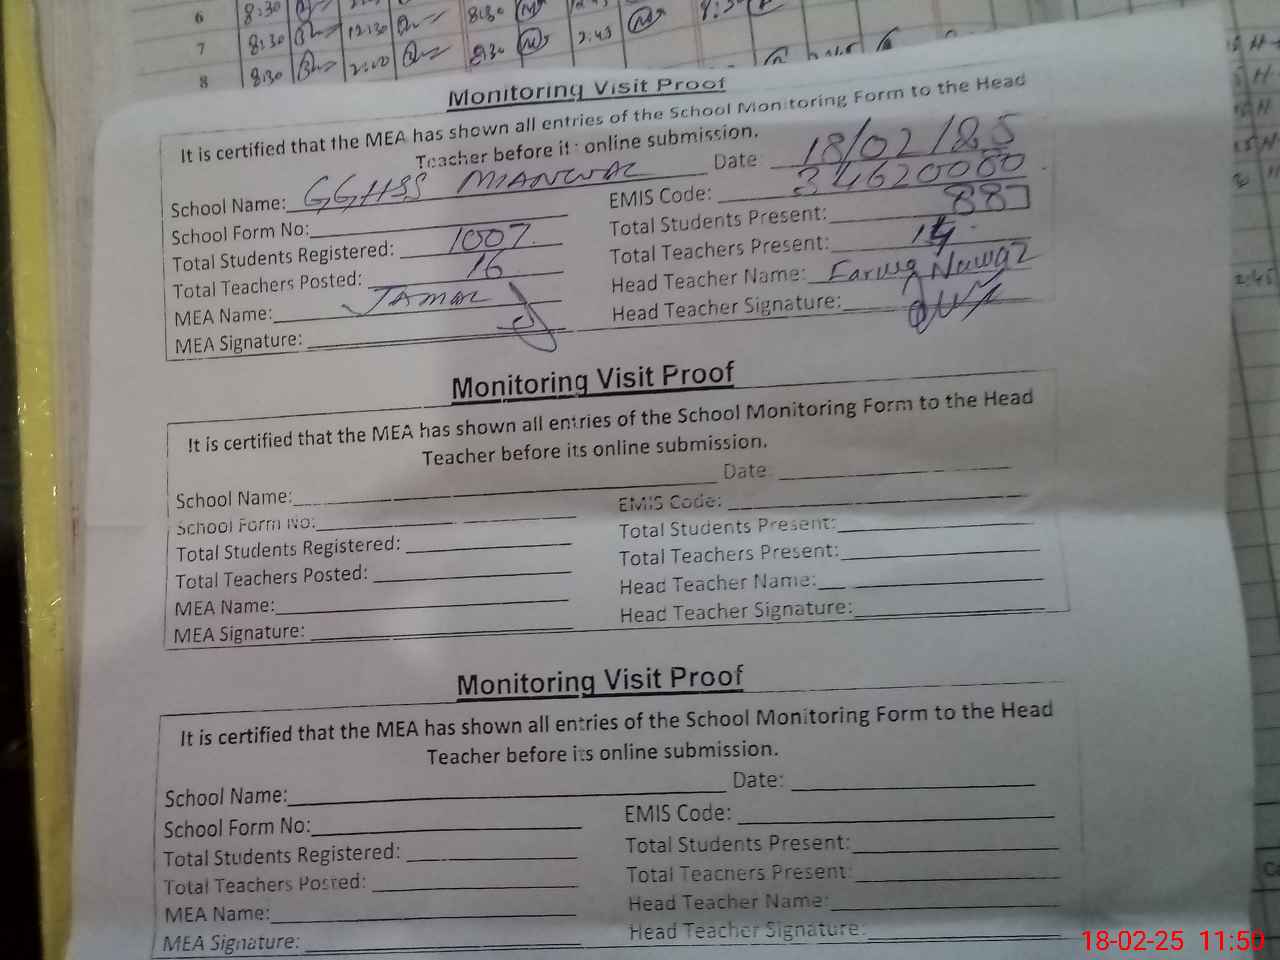 6 8:30
7 8:30 12:30 8:30 2:45 8:30
8 8:30 2:00 8:30
Monitoring Visit Proof
It is certified that the MEA has shown all entries of the School Monitoring Form to the Head
Teacher before its online submission.
School Name: GGHSS MIANWAL Date: 18/02/25
School Form No: EMIS Code: 34620080
Total Students Registered: 1007 Total Students Present: 887
Total Teachers Posted: 16 Total Teachers Present: 14
MEA Name: JAMAL Head Teacher Name: Nawaz
MEA Signature: Head Teacher Signature:
Monitoring Visit Proof
It is certified that the MEA has shown all entries of the School Monitoring Form to the Head
Teacher before its online submission.
School Name: Date:
School Form No: EMIS Code:
Total Students Registered: Total Students Present:
Total Teachers Posted: Total Teachers Present:
MEA Name: Head Teacher Name:
MEA Signature: Head Teacher Signature:
Monitoring Visit Proof
It is certified that the MEA has shown all entries of the School Monitoring Form to the Head
Teacher before its online submission.
School Name: Date:
School Form No: EMIS Code:
Total Students Registered: Total Students Present:
Total Teachers Posted: Total Teachers Present:
MEA Name: Head Teacher Name:
MEA Signature: Head Teacher Signature:
18-02-25 11:50